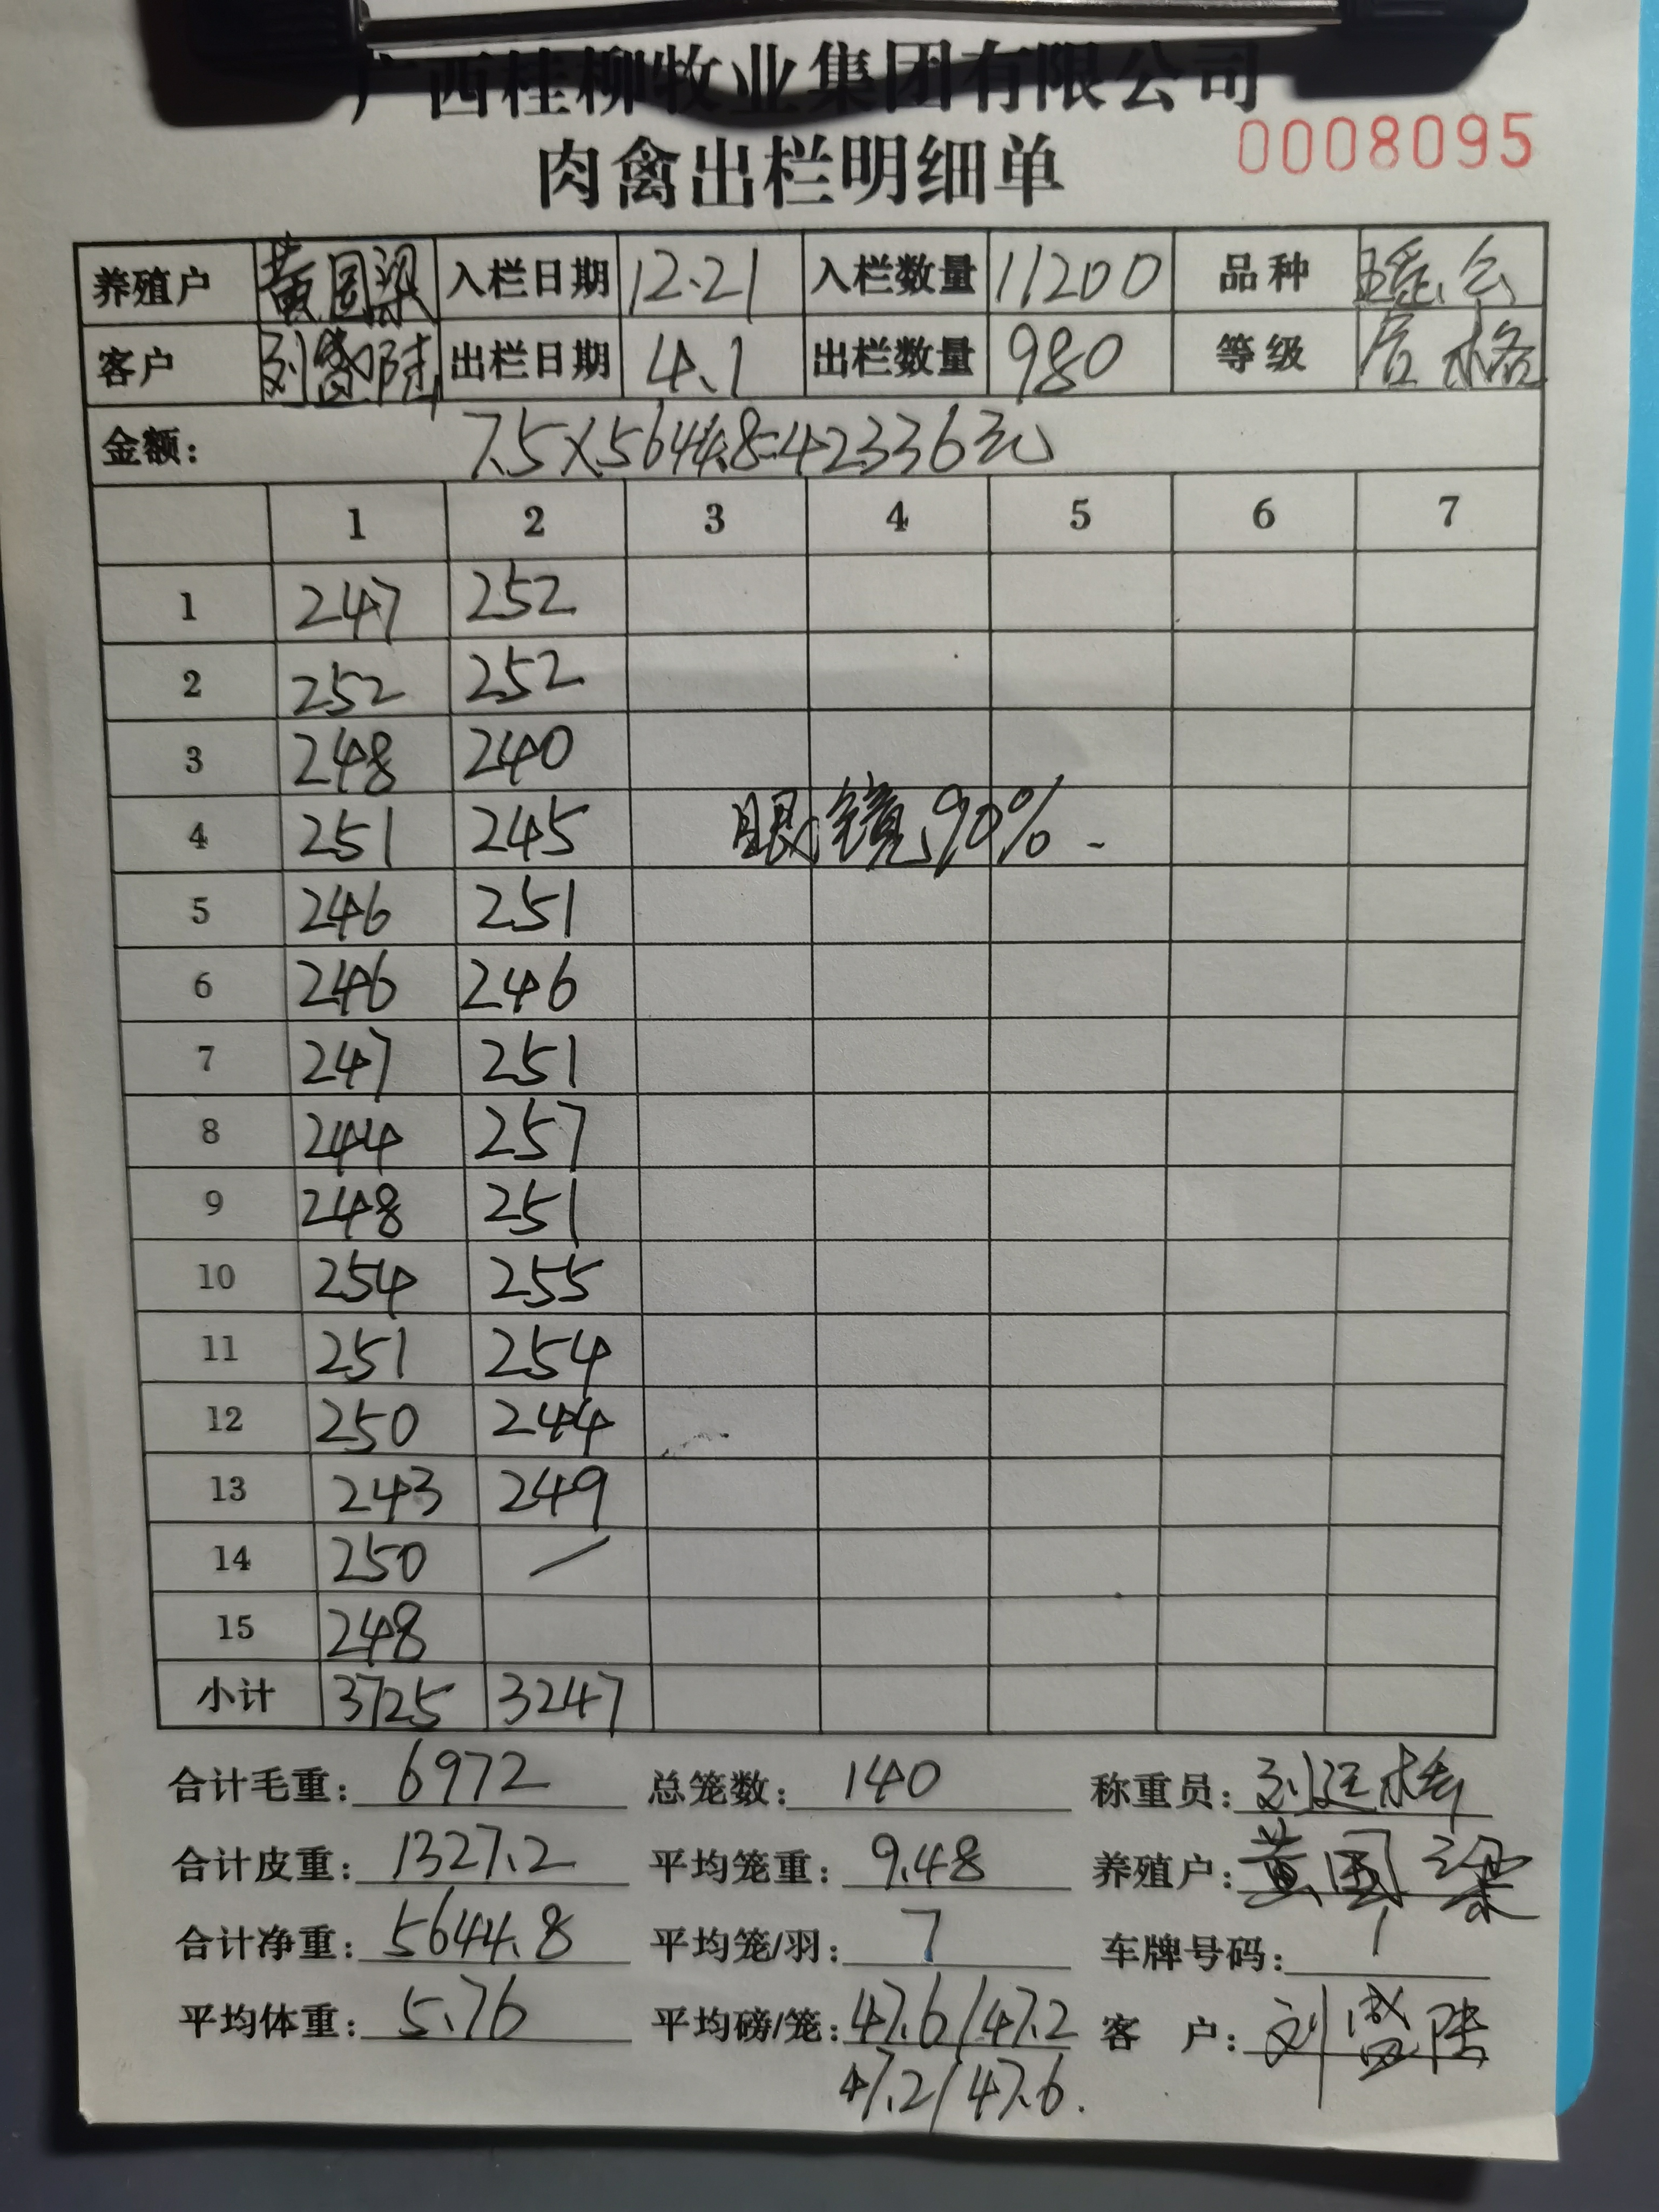 广西桂柳牧业集团有限公司
0008095
肉禽出栏明细单
养殖户 黄国梁 入栏日期 12.21 入栏数量 11200 品种 瑶公
客户 刘盛陆 出栏日期 4.1 出栏数量 980 等级 合格
金额: 7.5×5644.8=42336元
1 2 3 4 5 6 7
1 247 252
2 252 252
3 248 240
4 251 245 眼镜90%.
5 246 251
6 246 246
7 247 251
8 244 257
9 248 251
10 254 255
11 251 254
12 250 244
13 243 249
14 250 /
15 248
小计 3725 3247
合计毛重: 6972 总笼数: 140 称重员: 刘廷
合计皮重: 1327.2 平均笼重: 9.48 养殖户: 黄国梁
合计净重: 5644.8 平均笼/羽: 7 车牌号码: 1
平均体重: 5.76 平均磅/笼: 47.6/47.2 客户: 刘盛陆
47.2/47.6.